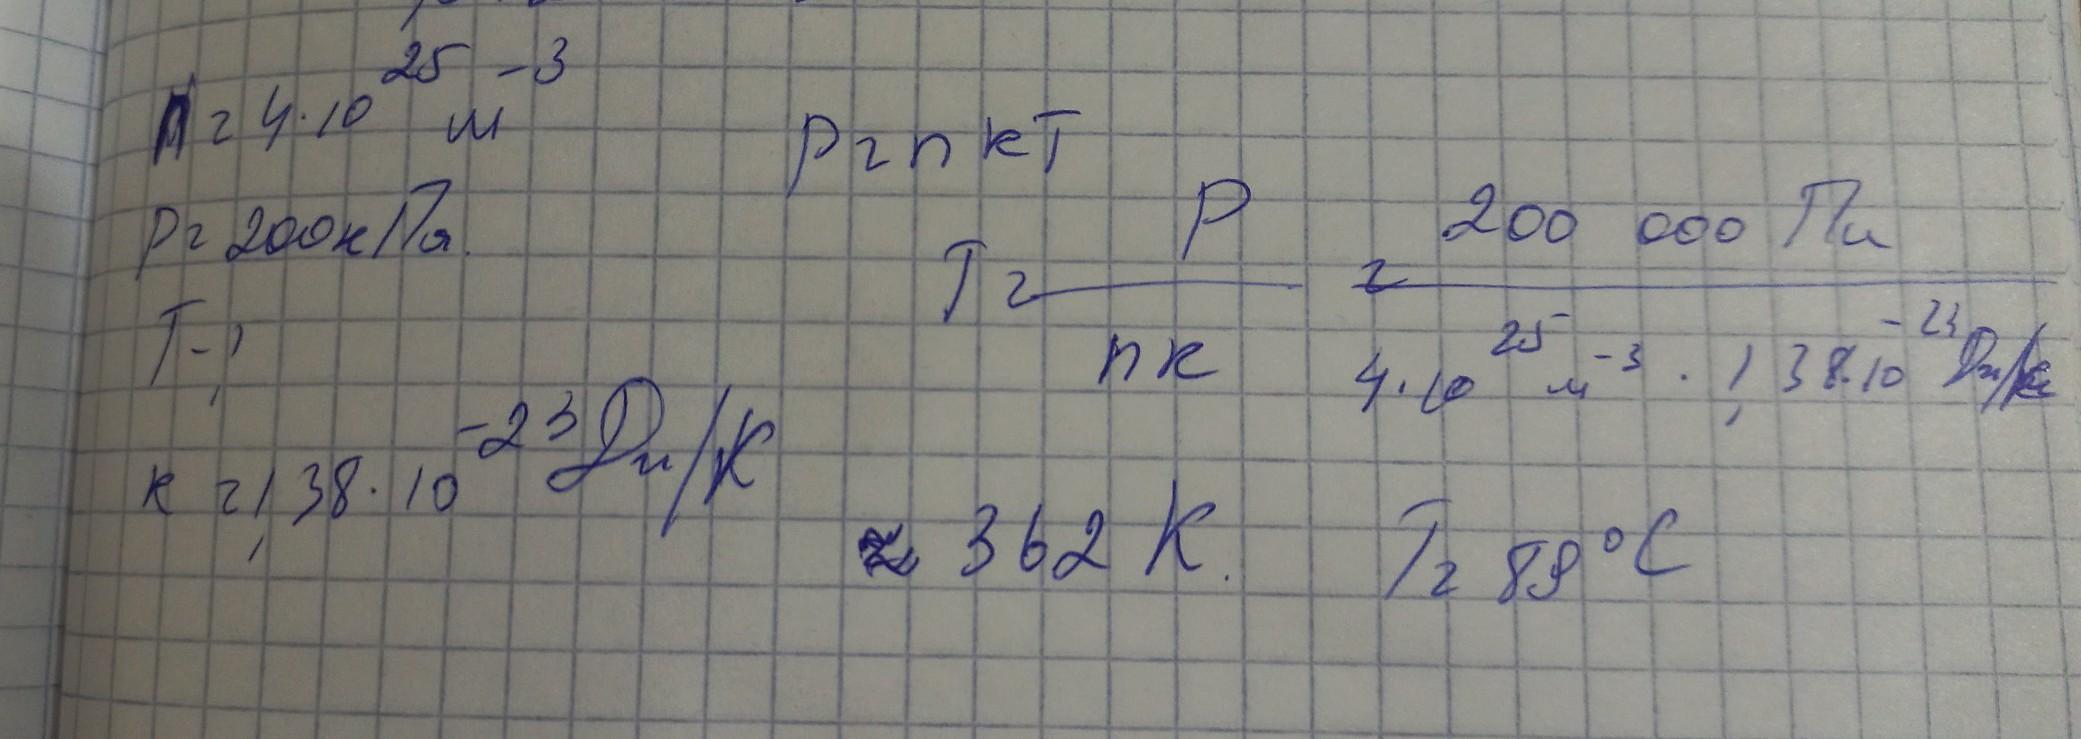 n = 4·10²⁵ м⁻³
p = 200кПа.
T - ?
k = 1,38·10⁻²³ Дж/К
p = nkT
T = p / nk = 200 000 Па / 4·10²⁵ м⁻³ · 1,38·10⁻²³ Дж/К
≈ 362 К. T = 89°C